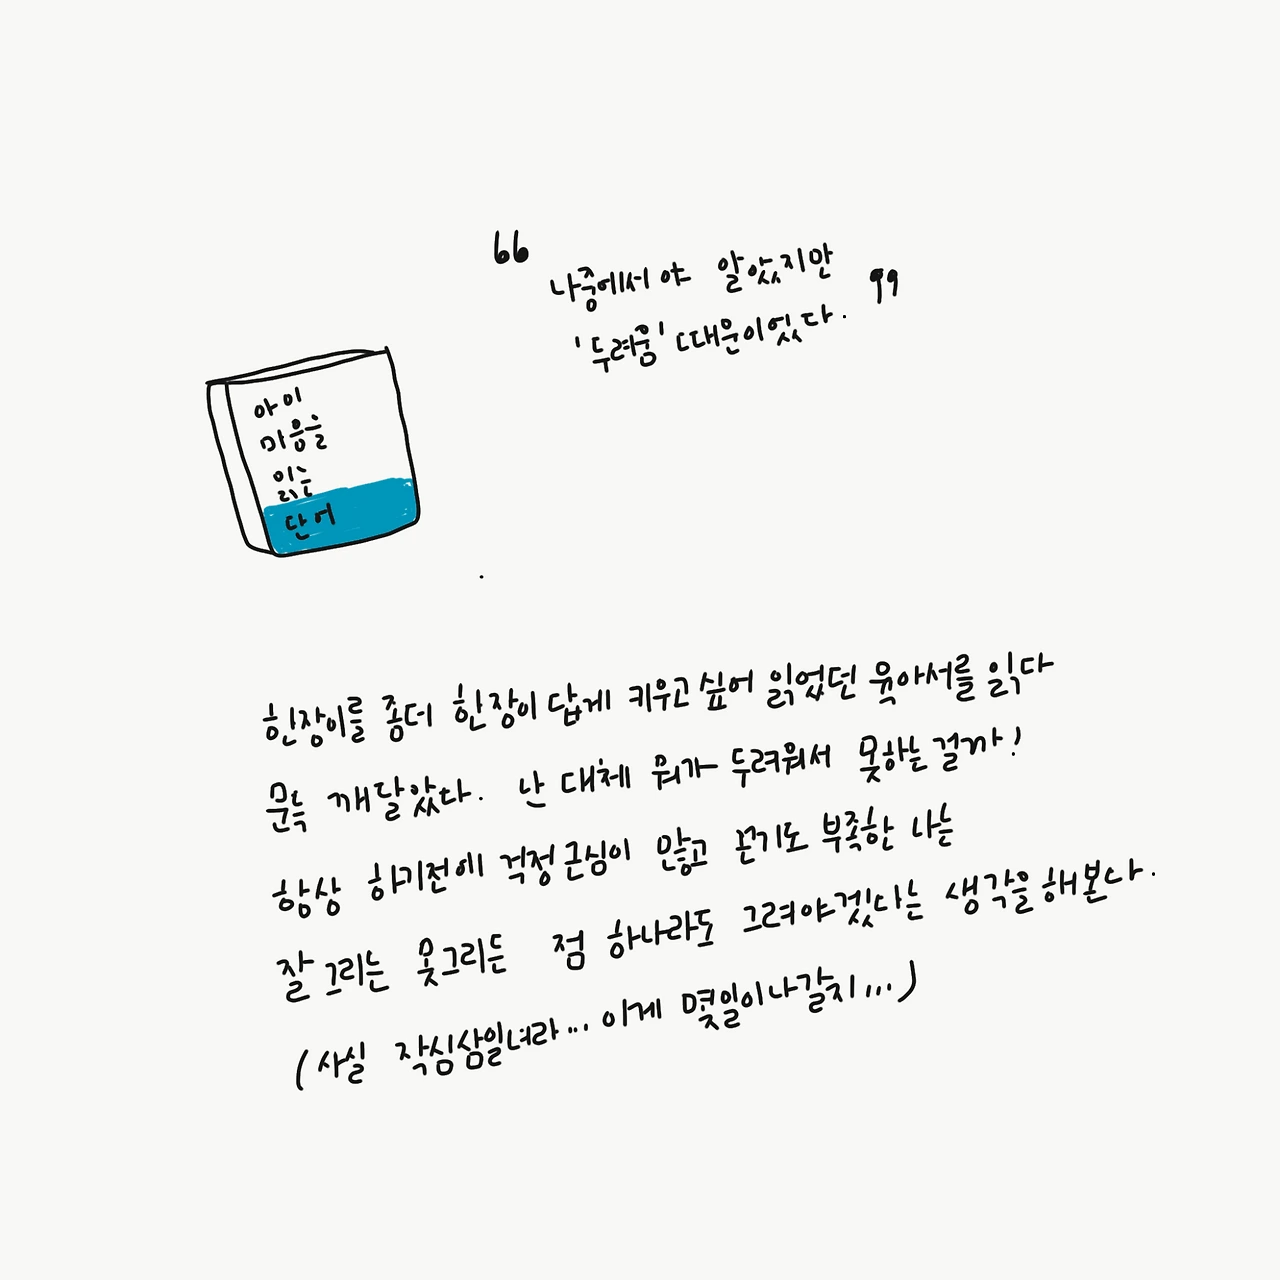 나중에서야 알았지만
'두려움' 때문이었다.
아이
마음을
읽는
단어
힌장이를 좀더 힌장이 답게 키우고 싶어 읽었던 육아서를 읽다
문득 깨달았다. 난 대체 뭐가 두려워서 못하는 걸까!
항상 하기전에 걱정근심이 많고 끈기도 부족한 나는
잘 그리든 못그리든 점 하나라도 그려야겠다는 생각을 해본다.
(사실 작심삼일녀라... 이게 몇일이나갈지...)